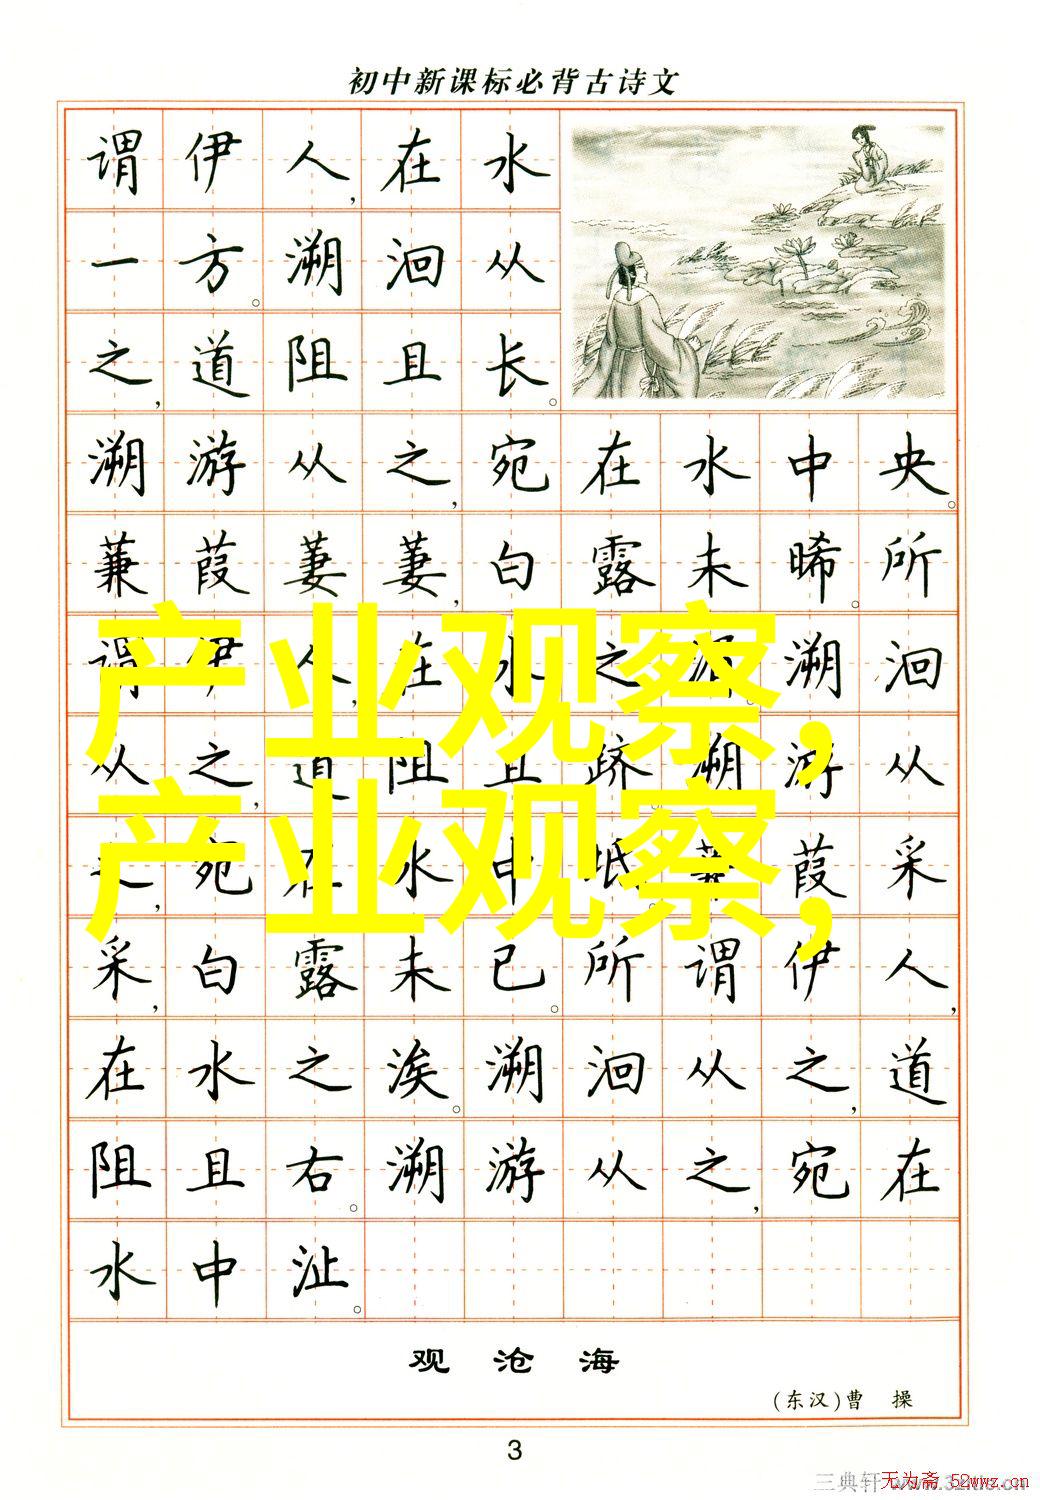 初中新课标必背古诗文
谓伊人,在水
一方。溯洄从
之,道阻且长。
溯游从之,宛在水中央。
蒹葭萋萋,白露未晞。所
谓伊人,在水之湄。溯洄
从之,道阻且跻。溯游从
之,宛在水中坻。蒹葭采
采,白露未已。所谓伊人,
在水之涘。溯洄从之,道
阻且右。溯游从之,宛在
水中沚。
产业观察,
产业观察,
观沧海
(东汉)曹 操
3
三典轩
无为斋 52wwz.cn